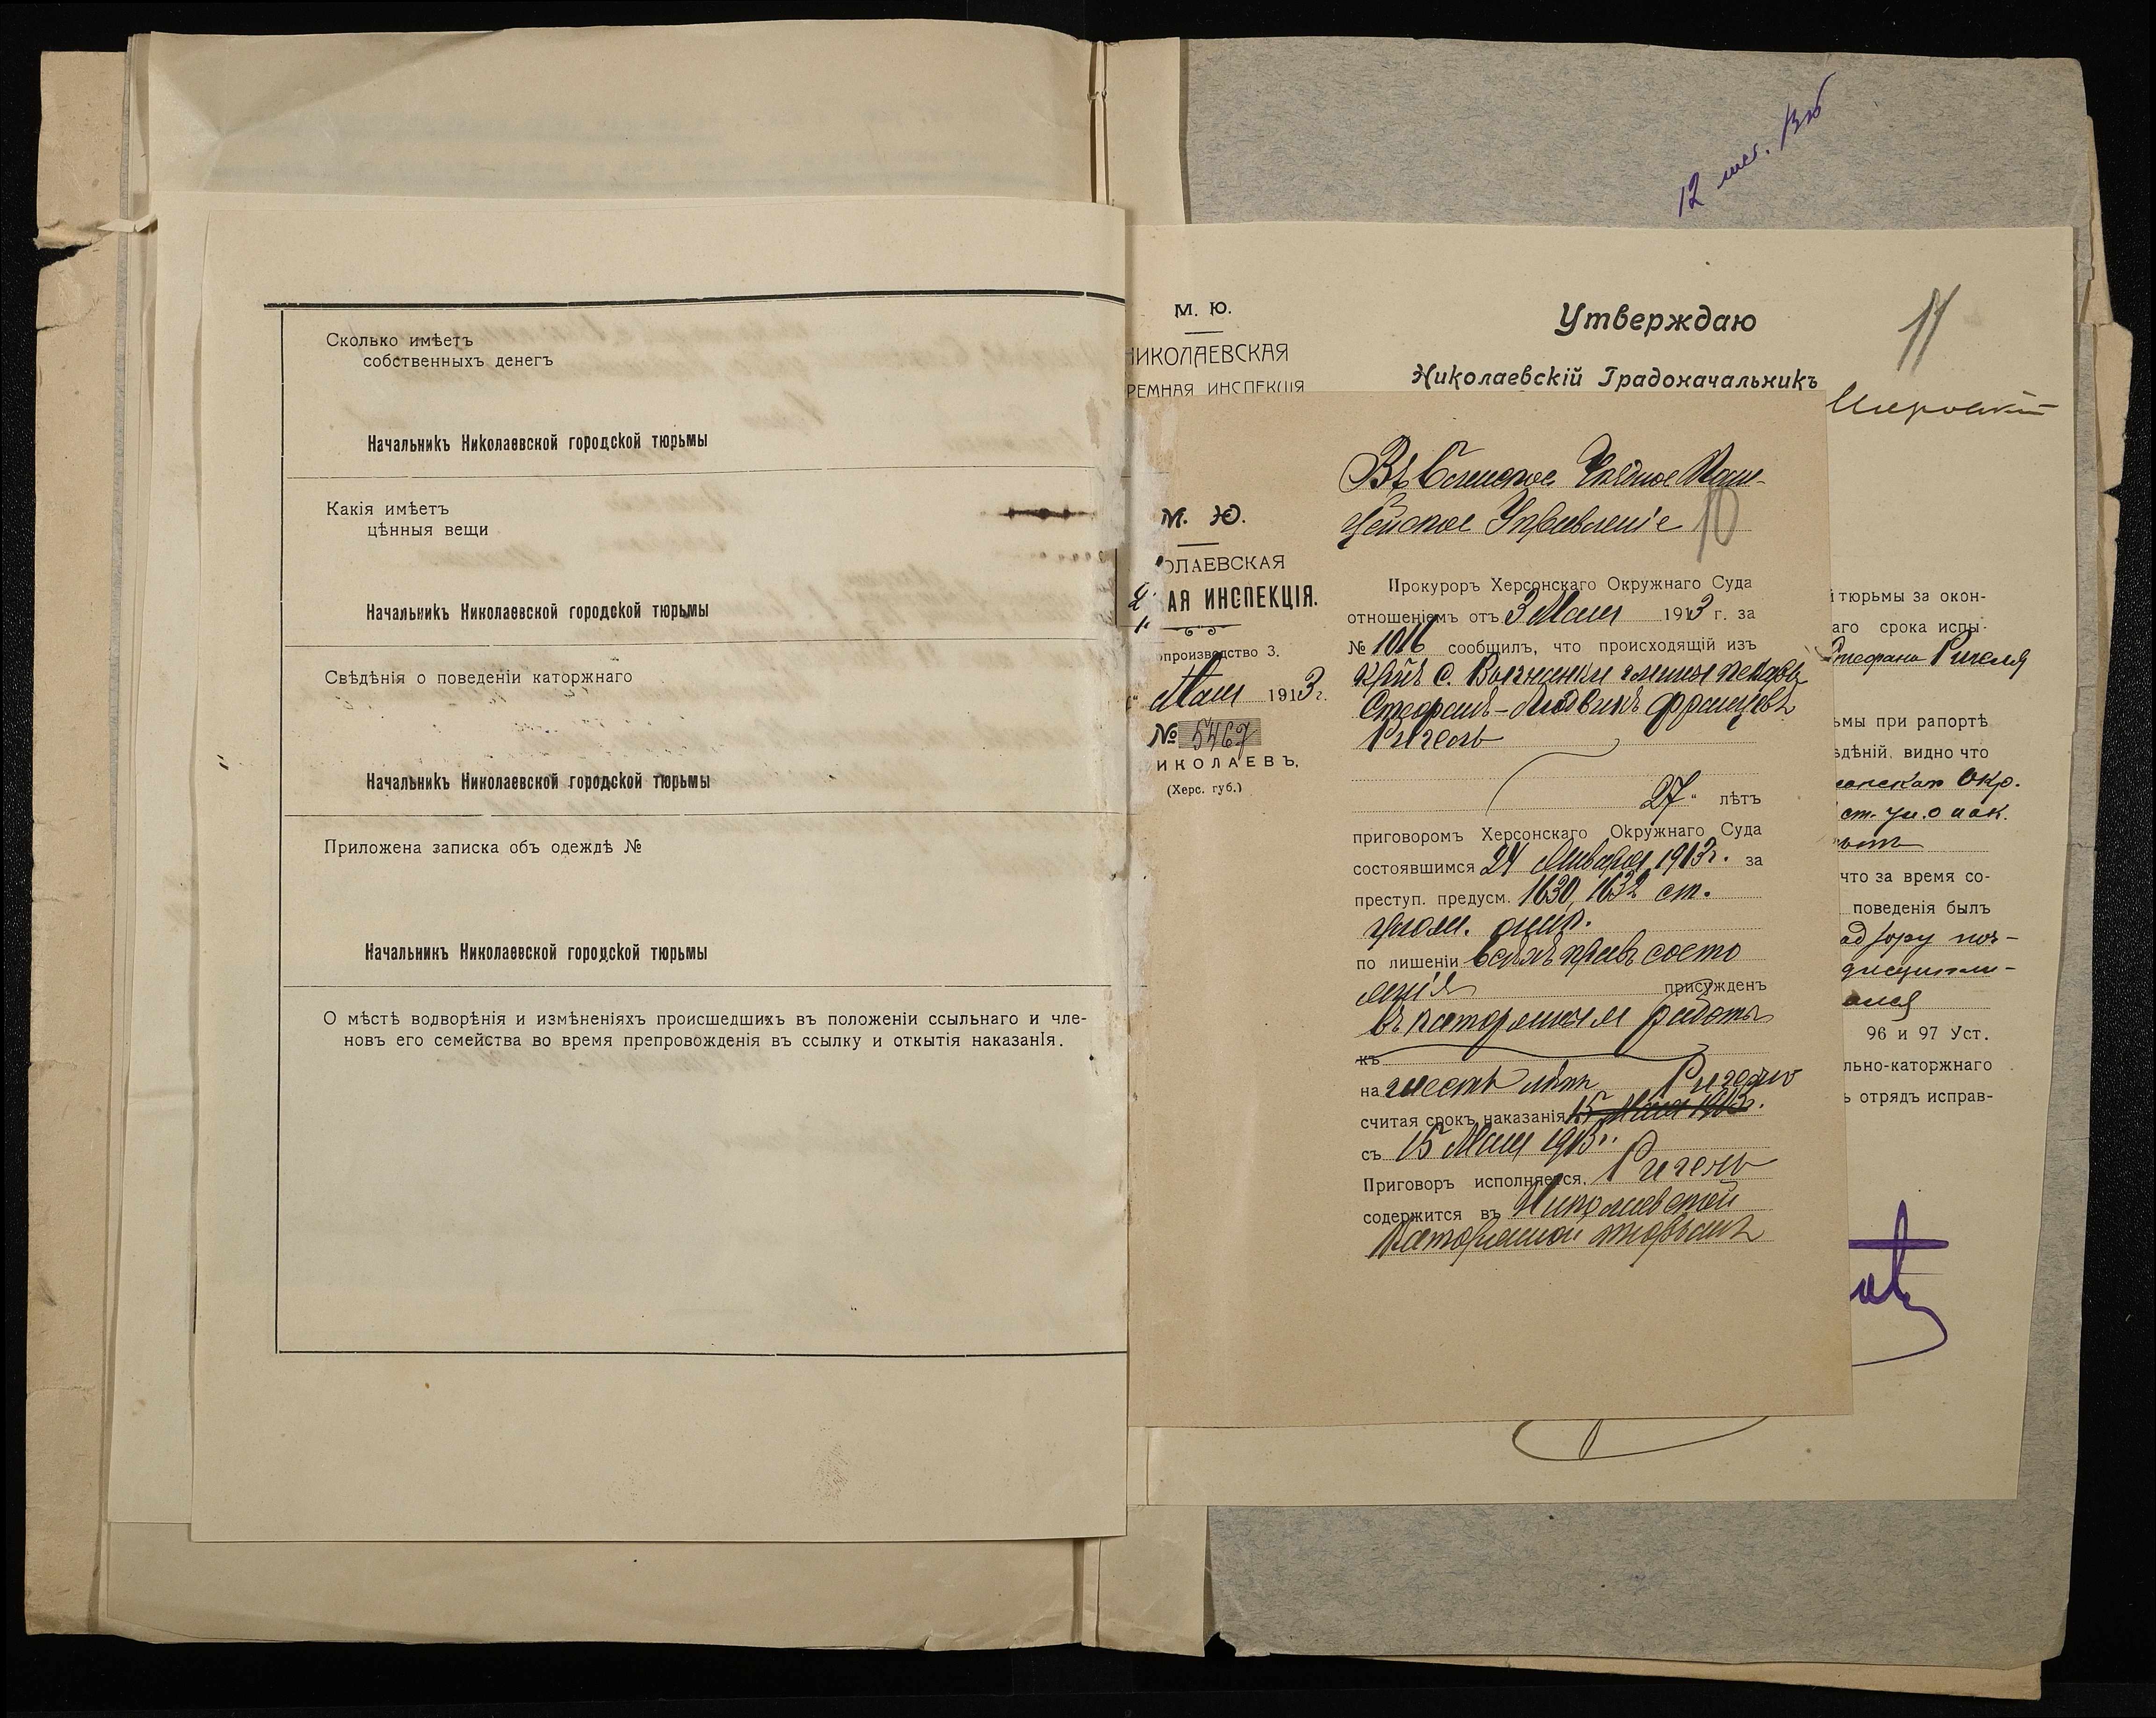 Сколько имѣетъ
собственныхъ денегъ
Начальникъ Николаевской городской тюрьмы
Какія имѣетъ
цѣнныя вещи
Начальникъ Николаевской городской тюрьмы
Свѣдѣнія о поведеніи каторжнаго
Начальникъ Николаевской городской тюрьмы
Приложена записка объ одеждѣ №
Начальникъ Николаевской городской тюрьмы
О мѣстѣ водворѣнія и измѣненіяхъ происшедшихъ въ положеніи ссыльнаго и чле-
новъ его семейства во время препровожденія въ ссылку и открытія наказанія.
12
М. Ю.
НИКОЛАЕВСКАЯ
РЕМНАЯ ИНСПЕКЦІЯ
Утверждаю
Николаевскій Градоначальникъ
11
М. Ю.
ОЛАЕВСКАЯ
АЯ ИНСПЕКЦІЯ.
опроизводство 3.
Мая 1913 г.
№ 5467
ИКОЛАЕВЪ,
(Херс. губ.)
Уѣздное Поли-
цейское Управленіе
10
Прокуроръ Херсонскаго Окружнаго Суда
отношеніемъ отъ 3 Мая 1913 г. за
№ 1016 сообщилъ, что происходящій изъ
Стефанъ-Людвикъ Францевъ
Ригель
27 лѣтъ
приговоромъ Херсонскаго Окружнаго Суда
состоявшимся 24 Января 1913 г. за
преступ. предусм. 1630, 1632 ст.
улож. о нак.
по лишеніи всѣхъ правъ состо
янія присужденъ
въ каторжныя работы
къ
на шесть лѣтъ Ригелю
считая срокъ наказанія 15 Мая 1913 г.
съ 15 Мая 1913 г.
Приговоръ исполняется, Ригель
содержится въ Николаевской
Каторжной тюрьмѣ
й тюрьмы за окон-
аго срока испы-
Стефана Ригеля
ьмы при рапортѣ
ѣдѣній, видно что
сонскаго Окр.
ст. Ул. о нак.
что за время со-
поведенія былъ
адзору
дисципли-
96 и 97 Уст.
льно-каторжнаго
ъ отрядъ исправ-